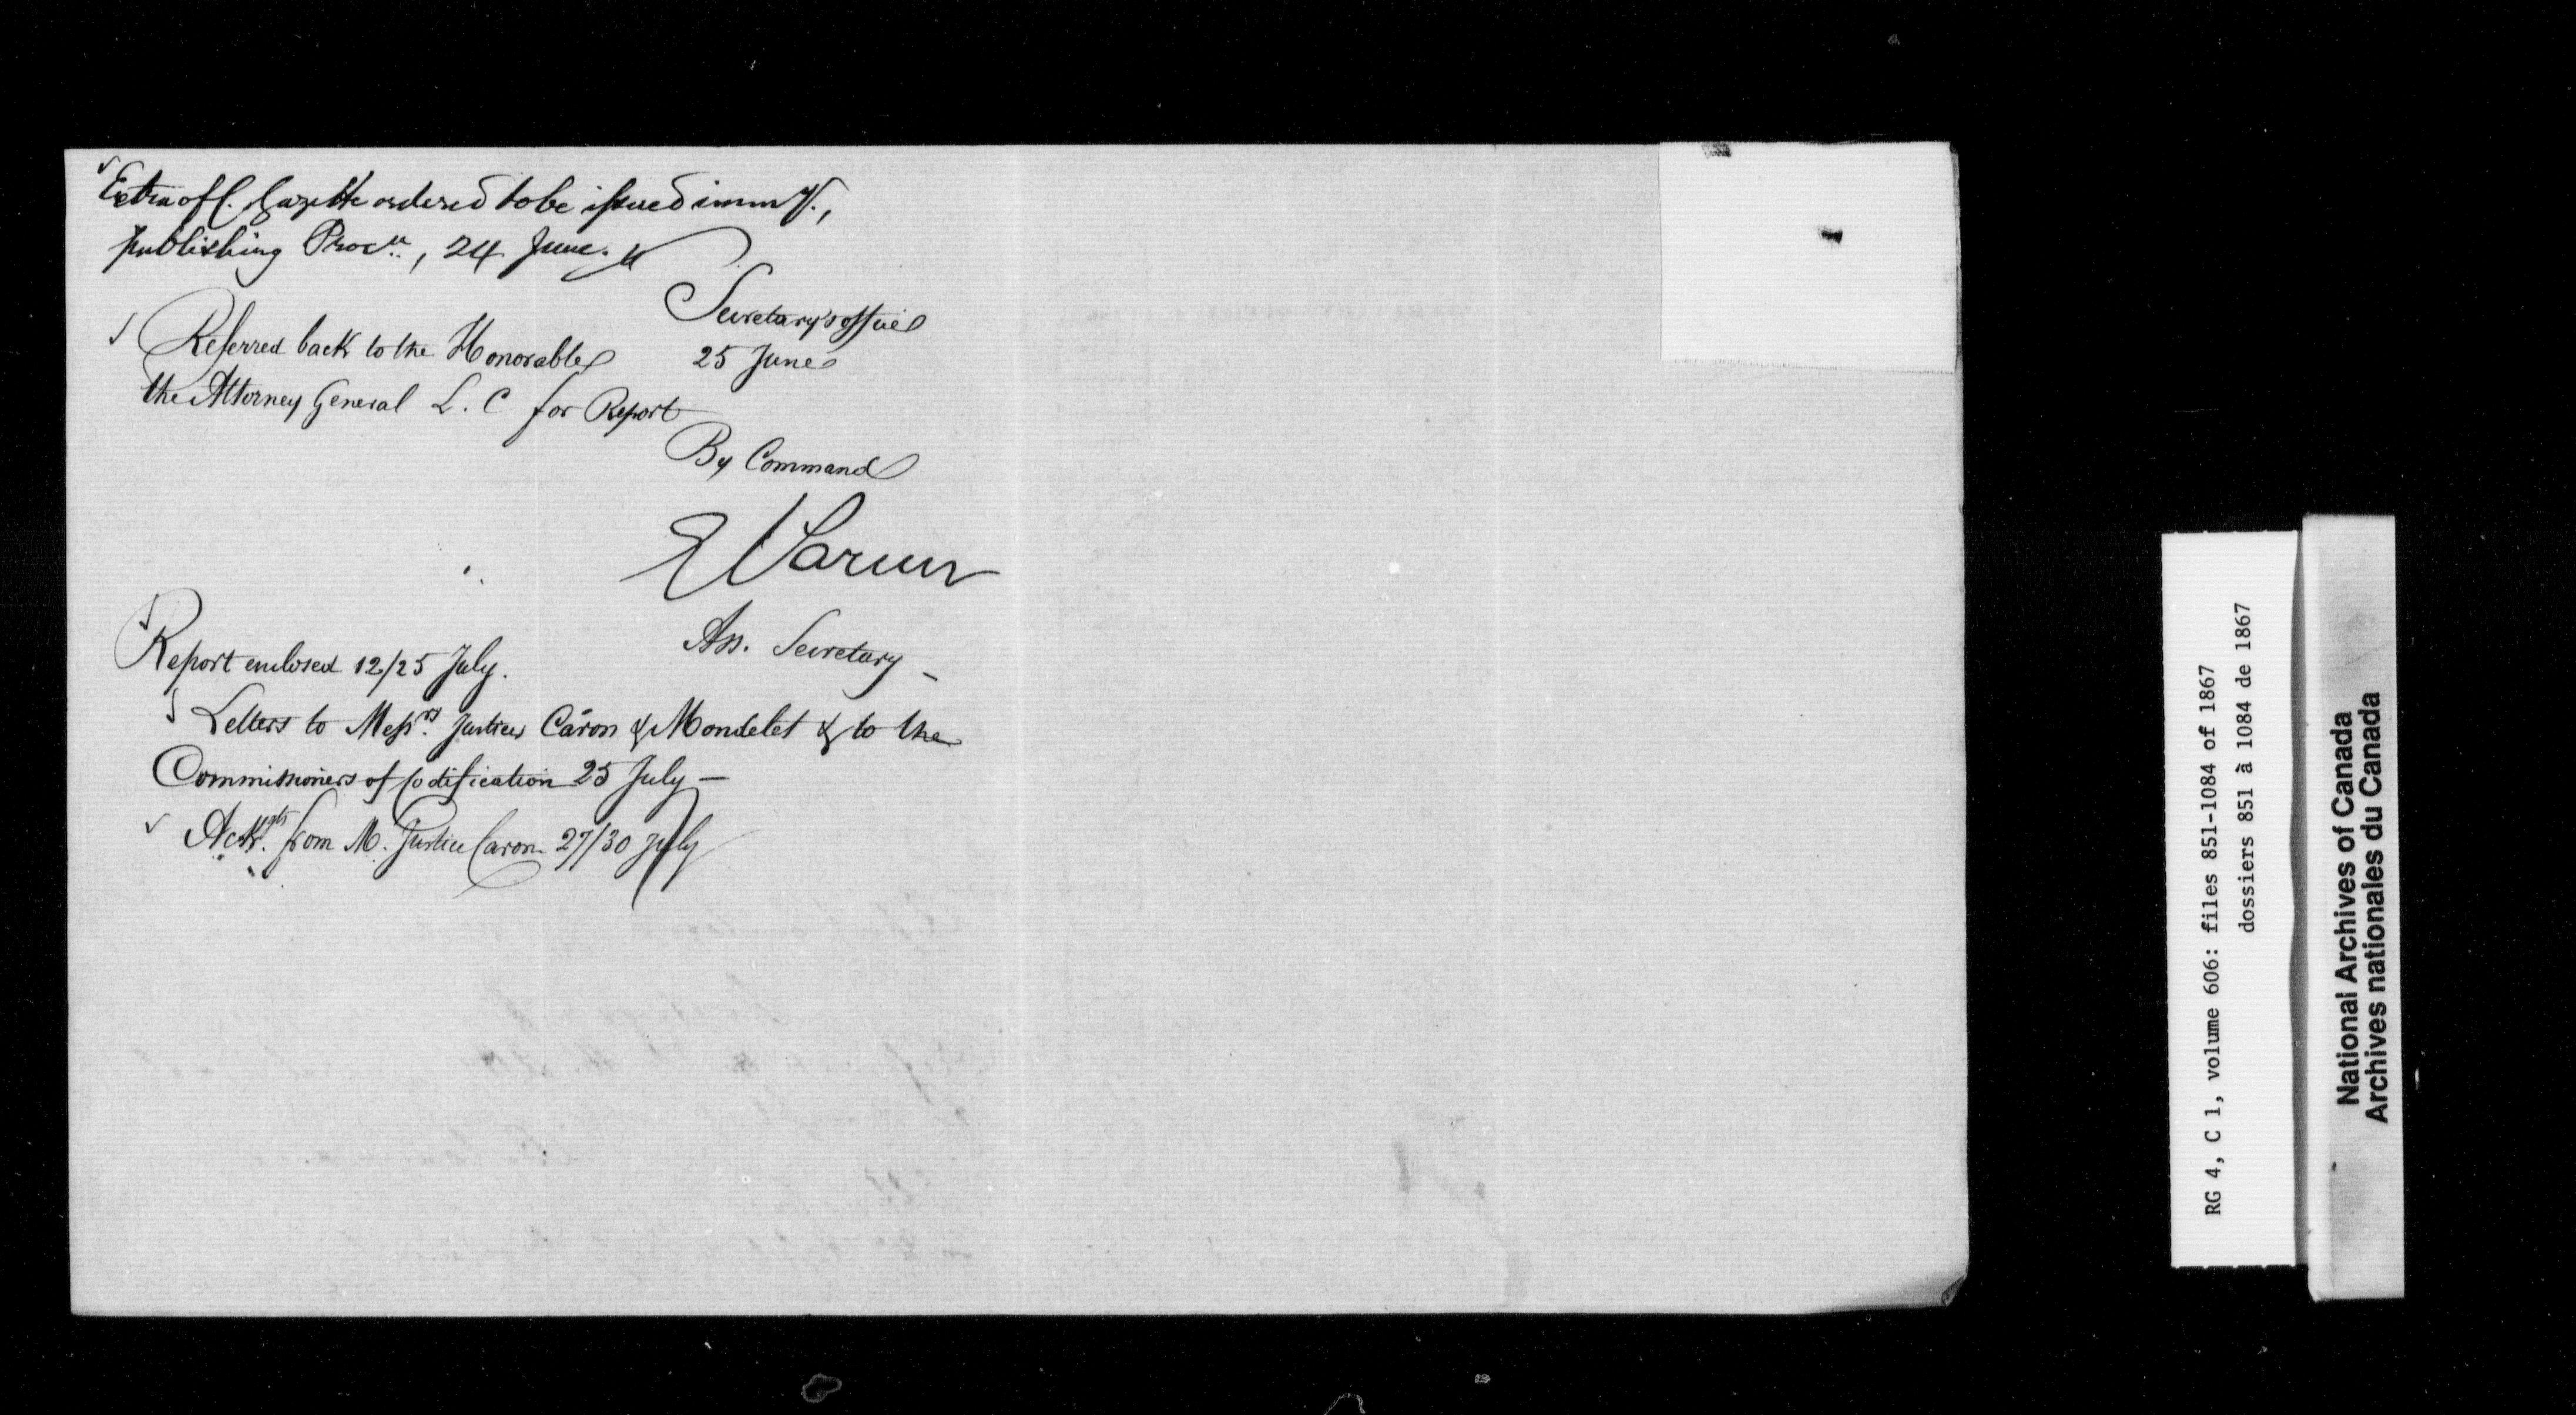 Extra off. Gazette ordered to be issued immy.,
publishing Procn., 24 June.
Secretary's office
25 June
Referred back to the Honorable
the Attorney General L. C for Report
By Command
E Parent
Ass. Secretary -
Report enclosed 12/25 July.
Letters to Messrs. Justices Caron & Mondelet & to the
Commissioners of Codification 25 July —
Ackgt. from M. Justice Caron 27/30 July
RG 4, C 1, volume 606: files 851-1084 of 1867
dossiers 851 à 1084 de 1867
National Archives of Canada
Archives nationales du Canada